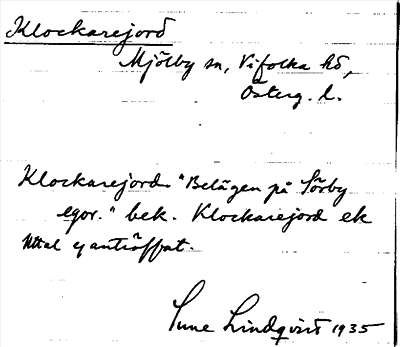 Klockarejord
Mjölby sn, Vifolka hd,
Österg. l.
Klockarejord. "Belägen på Sörby
egor." bek. Klockarejord ek
Uttal ej anträffat.
Sune Lindqvist 1935